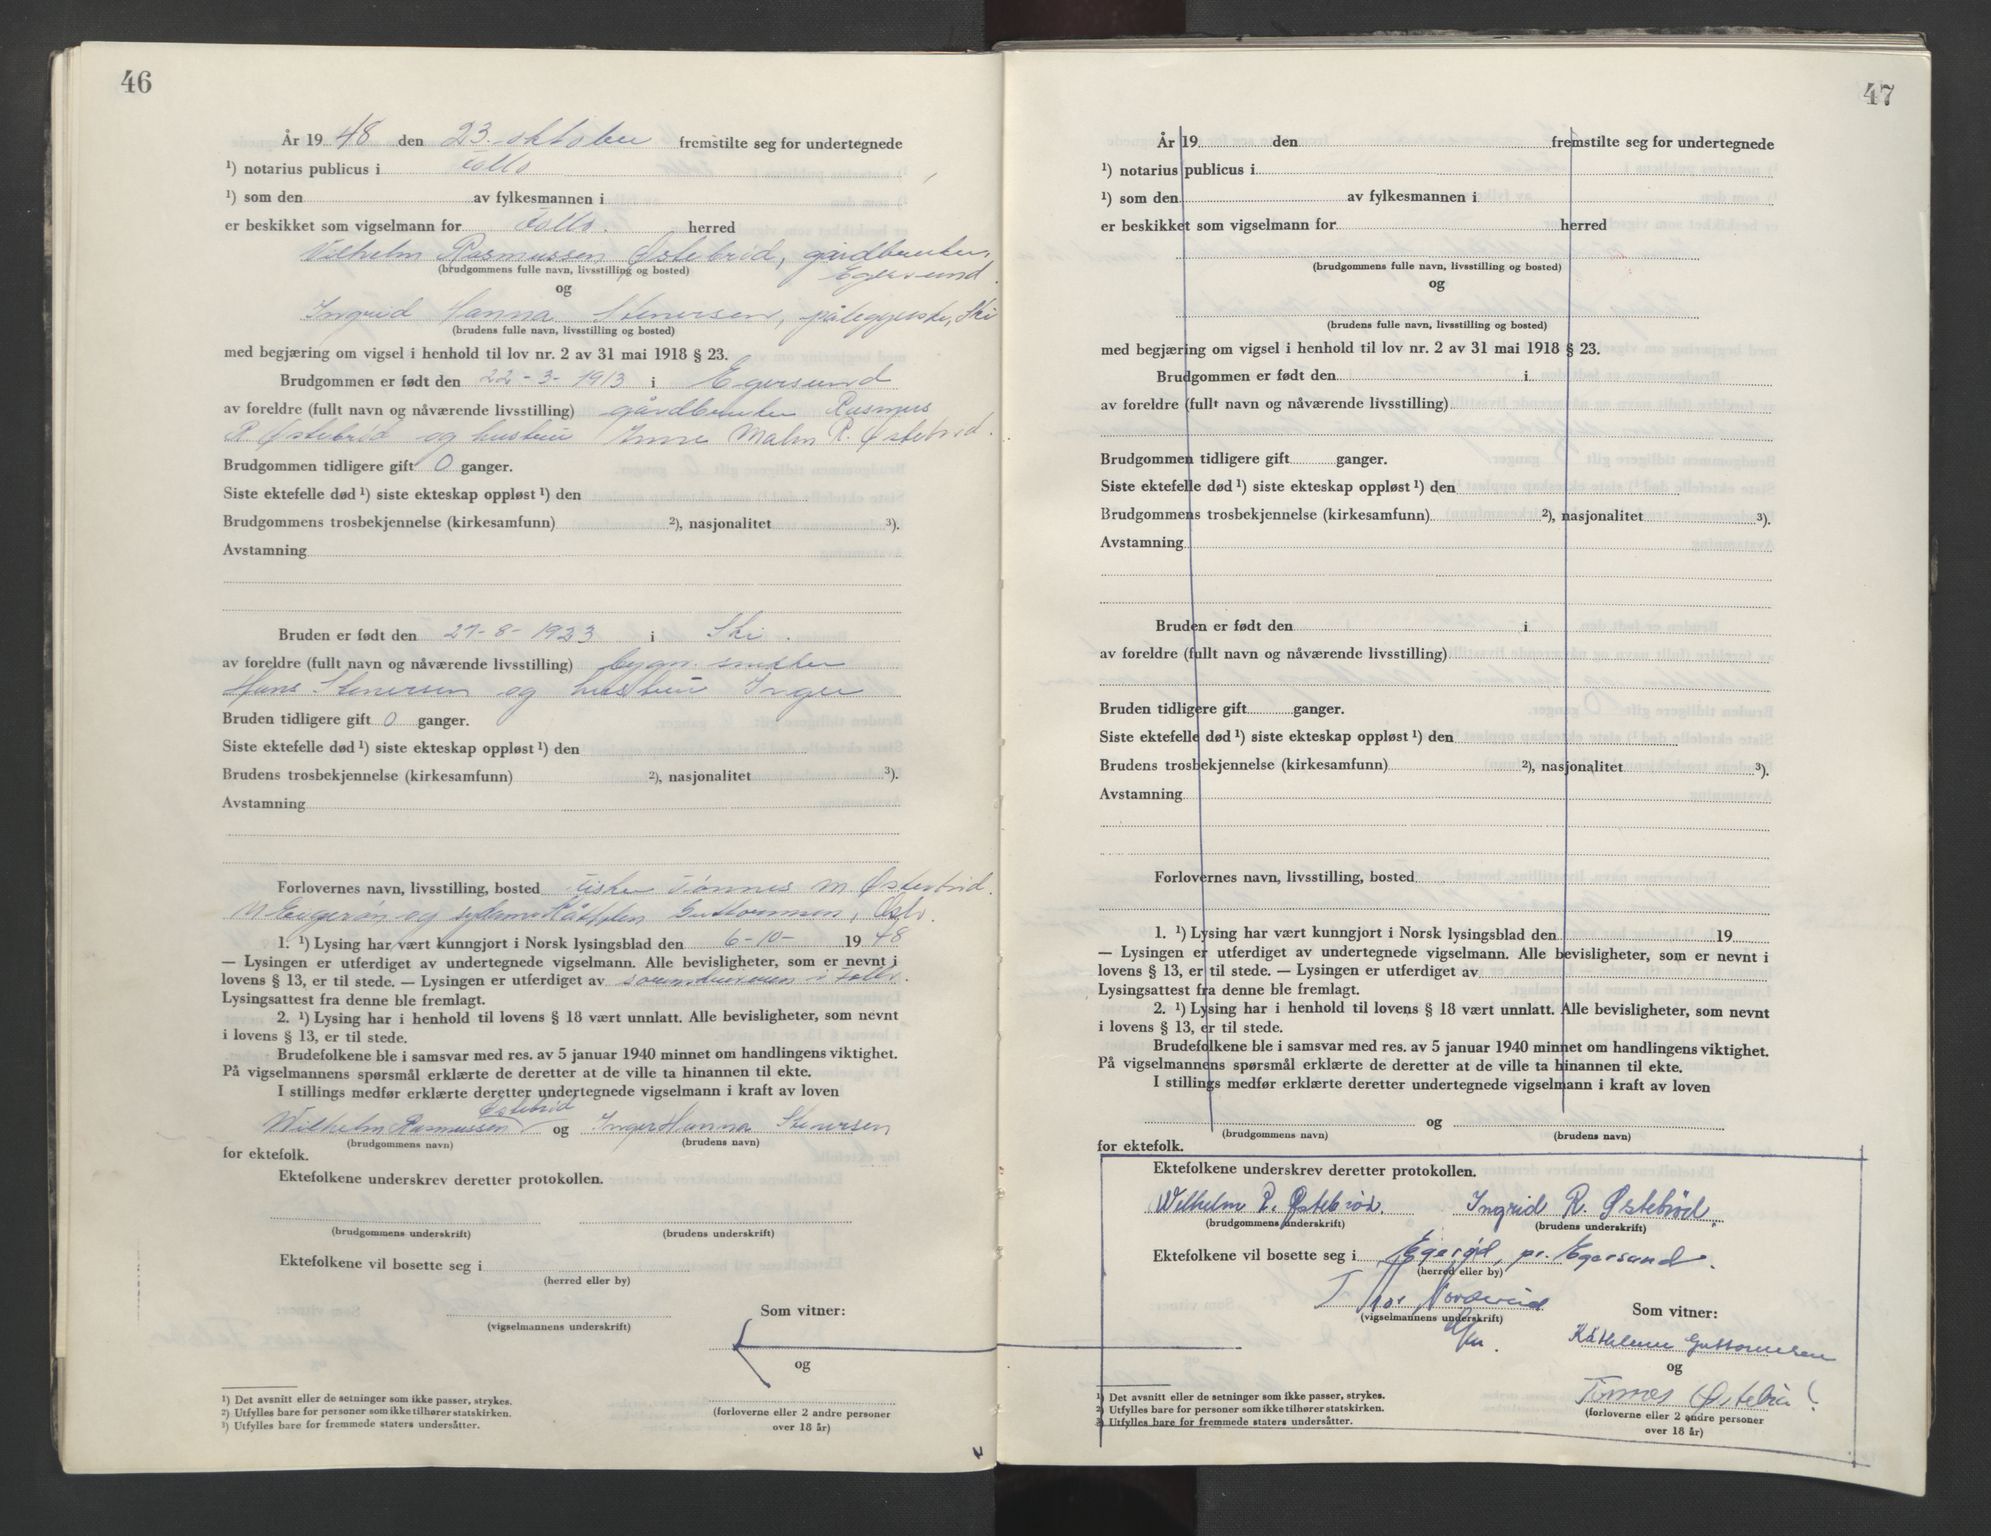 46
År 19 48 den 23. oktober fremstilte seg for undertegnede
¹) notarius publicus i Follo
¹) som den av fylkesmannen i
er beskikket som vigselmann for Follo. herred
Vilhelm Rasmussen Østebrød, gårdbruker,
Egersund.
(brudgommens fulle navn, livsstilling og bosted)
og
Ingrid Hanna Stenersen, påleggerske, Ski
(brudens fulle navn, livsstilling og bosted)
med begjæring om vigsel i henhold til lov nr. 2 av 31 mai 1918 § 23.
Brudgommen er født den 22-3-1913 i Egersund
av foreldre (fullt navn og nåværende livsstilling) gårdbruker Rasmus
R. Østebrød og hustru Malm R. Østebrød.
Brudgommen tidligere gift 0 ganger.
Siste ektefelle død ¹) siste ekteskap oppløst ¹) den
Brudgommens trosbekjennelse (kirkesamfunn) ²), nasjonalitet ³).
Avstamning
Bruden er født den 27-8-1923 i Ski.
av foreldre (fullt navn og nåværende livsstilling) bygn. snekker
Hans Stenersen og hustru Inga
Bruden tidligere gift 0 ganger.
Siste ektefelle død ¹) siste ekteskap oppløst ¹) den
Brudens trosbekjennelse (kirkesamfunn) ²), nasjonalitet ³).
Avstamning
Forlovernes navn, livsstilling, bosted fisker Tønnes M. Østebrød.
og Guttormsen, Oslo.
1. ¹) Lysing har vært kunngjort i Norsk lysingsblad den 6-10- 19 48
— Lysingen er utferdiget av undertegnede vigselmann. Alle bevisligheter, som er nevnt i
lovens § 13, er til stede. — Lysingen er utferdiget av sorenskriveren i Follo.
Lysingsattest fra denne ble fremlagt.
2. ¹) Lysing har i henhold til lovens § 18 vært unnlatt. Alle bevisligheter, som nevnt
i lovens § 13, er til stede.
Brudefolkene ble i samsvar med res. av 5 januar 1940 minnet om handlingens viktighet.
På vigselmannens spørsmål erklærte de deretter at de ville ta hinannen til ekte.
I stillings medfør erklærte deretter undertegnede vigselmann i kraft av loven
Østebrød
Wilhelm Rasmussen og Inger Hanna Stenersen
(brudgommens navn) (brudens navn)
for ektefolk.
Ektefolkene underskrev deretter protokollen.
(brudgommens underskrift) (brudens underskrift)
Ektefolkene vil bosette seg i
(herred eller by)
Som vitner:
(vigselmannens underskrift)
og
¹) Det avsnitt eller de setninger som ikke passer, strykes.
²) Utfylles bare for personer som ikke tilhører statskirken.
³) Utfylles bare for fremmede staters undersåtter.
(forloverne eller 2 andre personer
over 18 år)
47
År 19 den fremstilte seg for undertegnede
¹) notarius publicus i
¹) som den av fylkesmannen i
er beskikket som vigselmann for herred
(brudgommens fulle navn, livsstilling og bosted)
og
(brudens fulle navn, livsstilling og bosted)
med begjæring om vigsel i henhold til lov nr. 2 av 31 mai 1918 § 23.
Brudgommen er født den i
av foreldre (fullt navn og nåværende livsstilling)
Brudgommen tidligere gift ganger.
Siste ektefelle død ¹) siste ekteskap oppløst ¹) den
Brudgommens trosbekjennelse (kirkesamfunn) ²), nasjonalitet ³).
Avstamning
Bruden er født den i
av foreldre (fullt navn og nåværende livsstilling)
Bruden tidligere gift ganger.
Siste ektefelle død ¹) siste ekteskap oppløst ¹) den
Brudens trosbekjennelse (kirkesamfunn) ²), nasjonalitet ³).
Avstamning
Forlovernes navn, livsstilling, bosted
1. ¹) Lysing har vært kunngjort i Norsk lysingsblad den 19
— Lysingen er utferdiget av undertegnede vigselmann. Alle bevisligheter, som er nevnt i
lovens § 13, er til stede. — Lysingen er utferdiget av
Lysingsattest fra denne ble fremlagt.
2. ¹) Lysing har i henhold til lovens § 18 vært unnlatt. Alle bevisligheter, som nevnt
i lovens § 13, er til stede.
Brudefolkene ble i samsvar med res. av 5 januar 1940 minnet om handlingens viktighet.
På vigselmannens spørsmål erklærte de deretter at de ville ta hinannen til ekte.
I stillings medfør erklærte deretter undertegnede vigselmann i kraft av loven
og
(brudgommens navn) (brudens navn)
for ektefolk.
Ektefolkene underskrev deretter protokollen.
Wilhelm R. Østebrød. Ingrid R. Østebrød.
(brudgommens underskrift) (brudens underskrift)
Ektefolkene vil bosette seg i Egerød, pr. Egersund.
(herred eller by)
(vigselmannens underskrift)
Som vitner:
Guttormsen
og
Tønnes Østebrø
¹) Det avsnitt eller de setninger som ikke passer, strykes.
²) Utfylles bare for personer som ikke tilhører statskirken.
³) Utfylles bare for fremmede staters undersåtter.
(forloverne eller 2 andre personer
over 18 år)